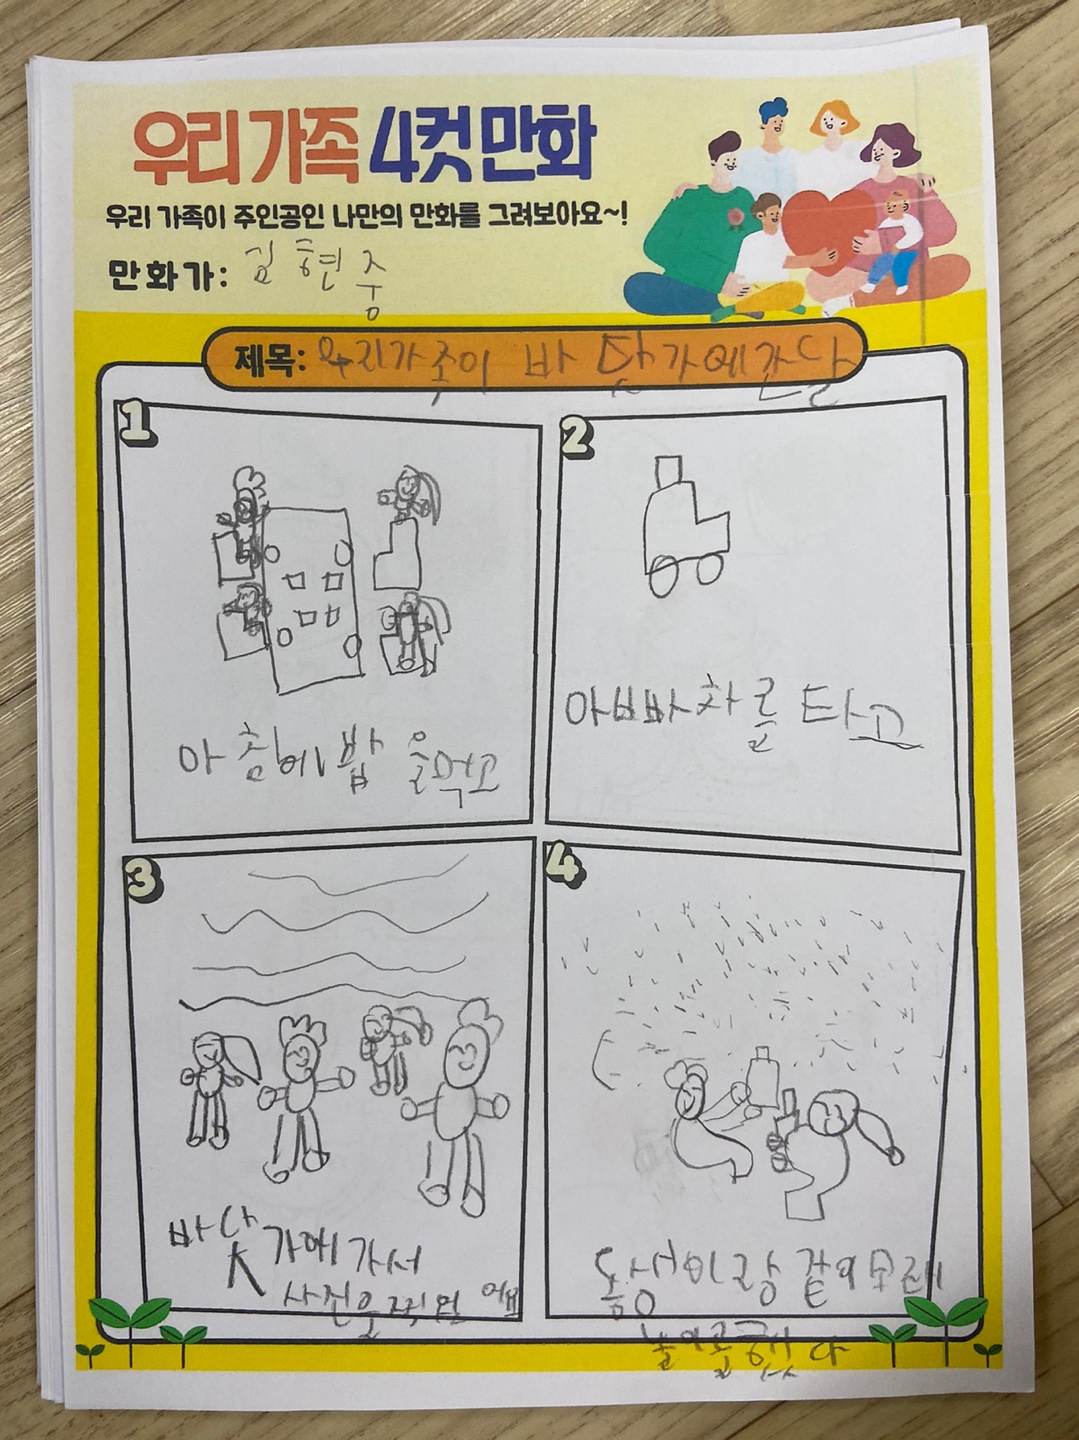 우리 가족 4컷 만화
우리 가족이 주인공인 나만의 만화를 그려보아요~!
만화가: 김현중
제목: 우리가족이 바닷가에간날
1
아침에밥을먹고
2
아빠차를 타고
3
바닷가에 가서
사진을 찍었
4
동생이랑 같이 모래
놀이를했다